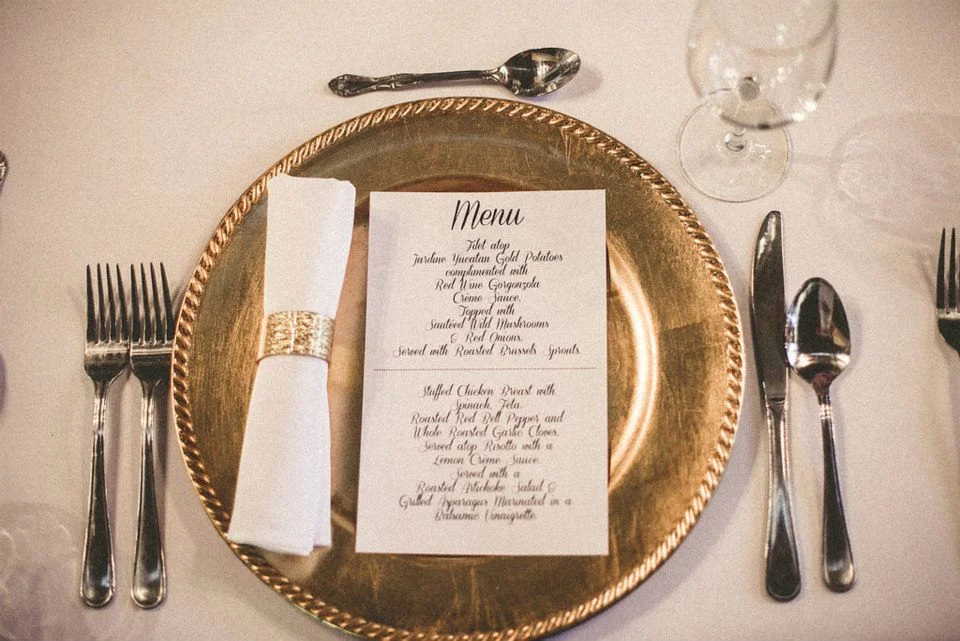 Menu
Filet atop
Jardine Yucatan Gold Potatoes
complimented with
Red Wine Gorgonzola
Créme Sauce,
Topped with
Sautéed Wild Mushrooms
& Red Onions,
Served with Roasted Brussels Sprouts.
Stuffed Chicken Breast with
Spinach, Feta,
Roasted Red Bell Pepper and
Whole Roasted Garlic Cloves,
Served atop Risotto with a
Lemon Créme Sauce.
Served with a
Roasted Artichoke Salad &
Grilled Asparagus Marinated in a
Balsamic Vinaigrette.